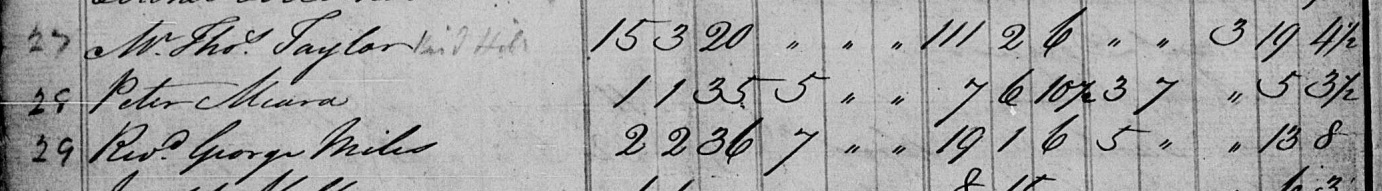 27 Mr. Thos. Taylor 15 3 20 " " " 111 2 6 " " 3 19 4½
28 Peter Meara 1 1 35 5 " " 7 6 10½ 3 7 " 5 3½
29 Revd. George Miles 2 2 36 7 " " 19 1 6 5 " " 13 8